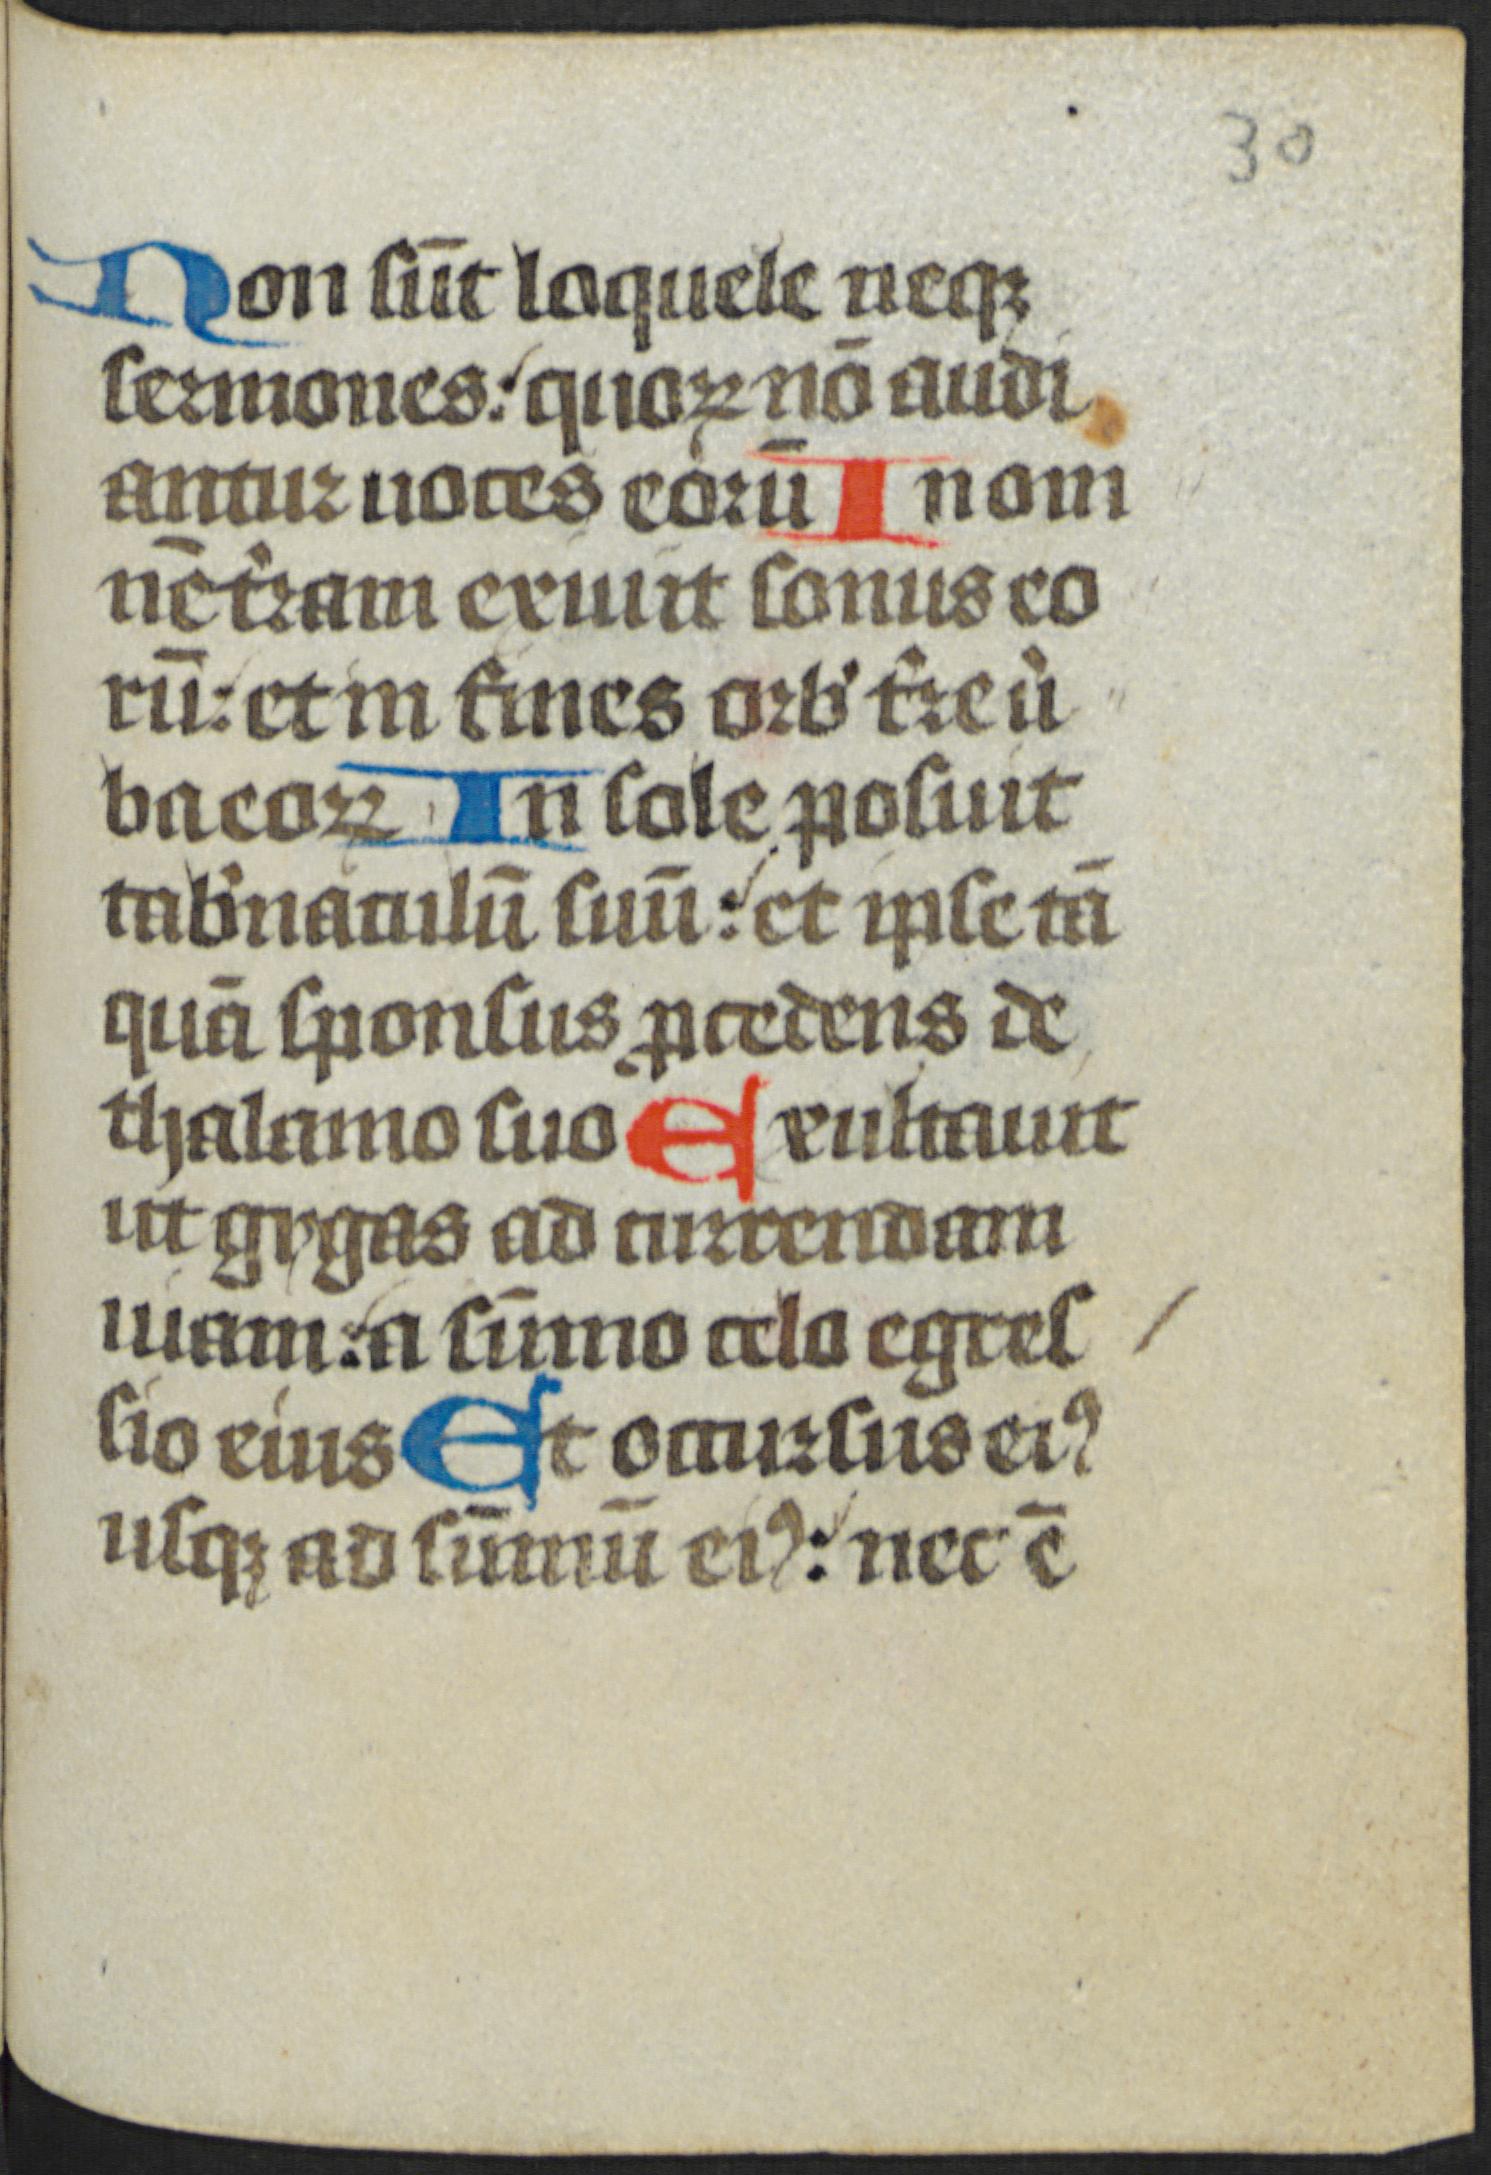 30
Non sūt loquele neqꝫ
sermones: quoꝝ nō audi
antur uoces eorū In om
nē t'ram exiuit sonus eo
rū: et in fines orb' t're u'
ba eoꝝ In sole posuit
tab'naculū suū: et ipse tā
quā sponsus ꝓcedens de
thalamo suo Exultauit
ut gygas ad currendam
uiam: a sūmo celo egres
sio eius Et occursus eiꝰ
usqꝫ ad sūmū eiꝰ: nec ē